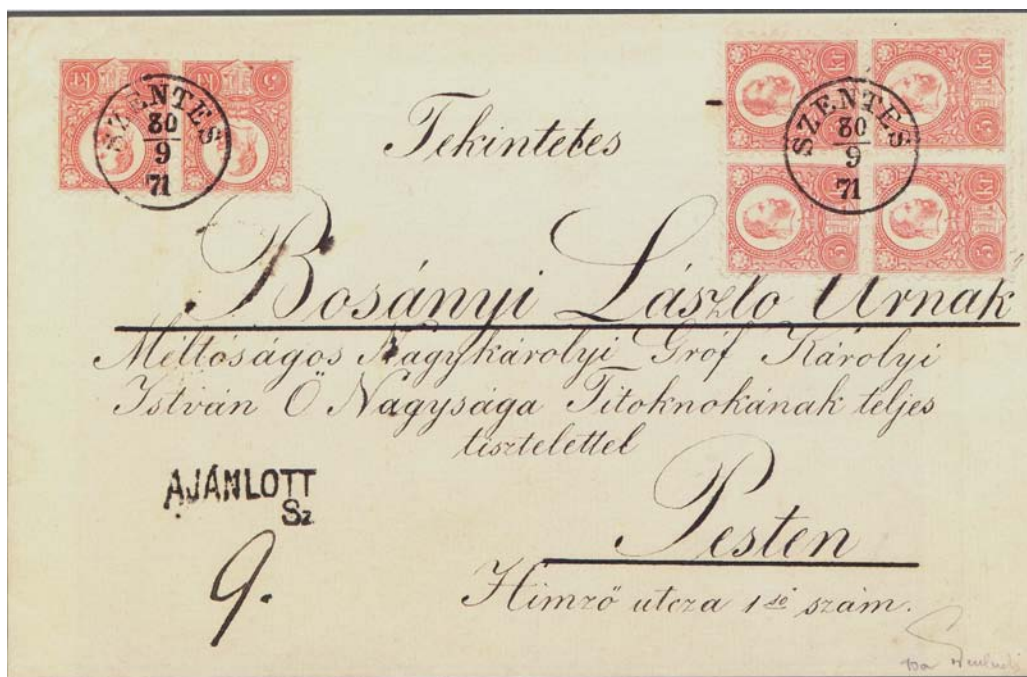 5 kr
5 kr
5 kr
5 kr
5 kr
5 kr
SZENTES
30
9
71
SZENTES
30
9
71
Tekintetes
Bosányi László Urnak
Méltóságos Nagykárolyi Gróf Károlyi
István Ő Nagysága Titoknokának teljes
tisztelettel
AJÁNLOTT
Sz
9.
Pesten
Himző utcza 1ső szám.